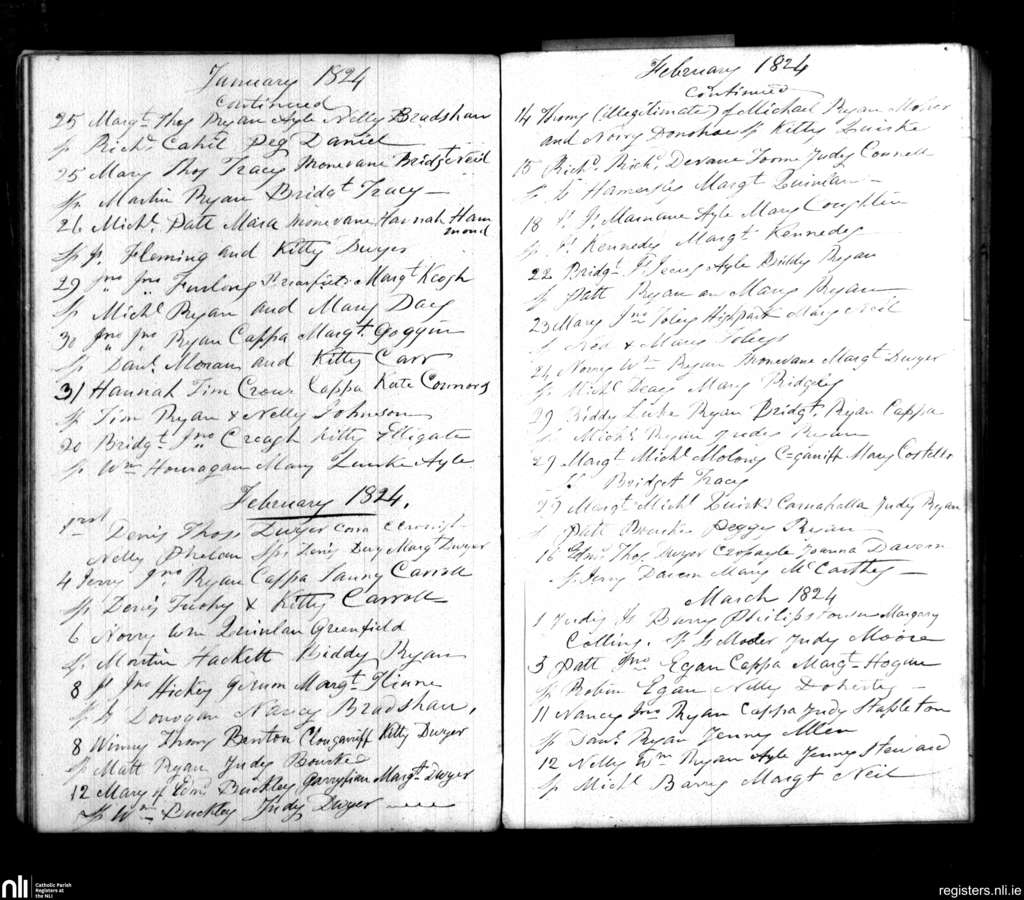 January 1824
Continued
25 Margt Thos Ryan Ayle Nelly Bradshaw
Sp Richd Cahil Peg Daniel
25 Mary Thos Tracy Monevane Bridgt Neil
Sp Martin Ryan Bridgt Tracy
26 Michl Patt Mara Monevane Hannah Ham
mond
Sp Js Fleming and Kitty Dwyer
29 Jno Jno Furlong Margt Keogh
Sp Michl Ryan and Mary Dacy
30 Jno Jno Ryan Cappa Margt Goggin
Sp Danl Moran and Kitty Carr
31 Hannah Tim Crowe Cappa Kate Connors
Sp Tim Ryan & Nelly Johnson
20 Bridgt Jno Creagh Kitty Elligate
Sp Wm Houragan Mary Ayle
February 1824.
first Denis Thos Dwyer
Nelly Phelan Sps Denis Margt Dwyer
4 Jerry Jno Ryan Cappa Carroll
Sp Denis Tuohy & Kitty Carroll
6 Norry Wm Quinlan Greenfield
Sp Martin Hackett Biddy Ryan
8 Js Jno Hickey Margt Flinne
Sp Js Donogan Nancy Bradshaw,
8 Winny Thomy Banton Clouganiff Kitty Dwyer
Sp Matt Ryan Judy Bourke
12 Mary of Edm Buckley Margt Dwyer
Sp Wm Buckley Judy Dwyer
February 1824
Continued
14 Thomy (illegitimate) of Michael Ryan
and Norry Donohoe Sp Kitty
15 Richd Richd Devane Toome Judy Connell
Sp Js Hamersly Margt Quinlan
18 Js Js Marnane Ayle Mary Coughlin
Sp Js Kennedy Margt Kennedy
22 Bridgt Ayle Biddy Ryan
Sp Patt Ryan an Mary Ryan
23 Mary Jno Mary Neil
Sp Ned & Mary
24 Norry Wm Ryan Monevane Margt Dwyer
Sp Michl Deay Mary
29 Biddy Luke Ryan Bridgt Ryan Cappa
Sp Michl Ryan Judy Ryan
29 Margt Michl Molony Mary Costello
Sp Bridget Tracy
29 Margt Michl Judy Ryan
Sp Patt Bourke Peggy Ryan
16 Edmd Thos Dwyer Joanna Davern
Sp Jerry Davern Mary McCarthy
March 1824
1 Judy Js Barry Philipstown Margary
Collins. Sp Js Judy Moore
3 Patt Jno Egan Cappa Margt Hogan
Sp Robin Egan Nelly Doherty
11 Nancy Jno Ryan Cappa Judy Stapleton
Sp Danl Ryan Jenny Allen
12 Nelly Wm Ryan Ayle Jenny Steward
Sp Michl Barry Margt Neil
nli
Catholic Parish
Registers at
the NLI
registers.nli.ie